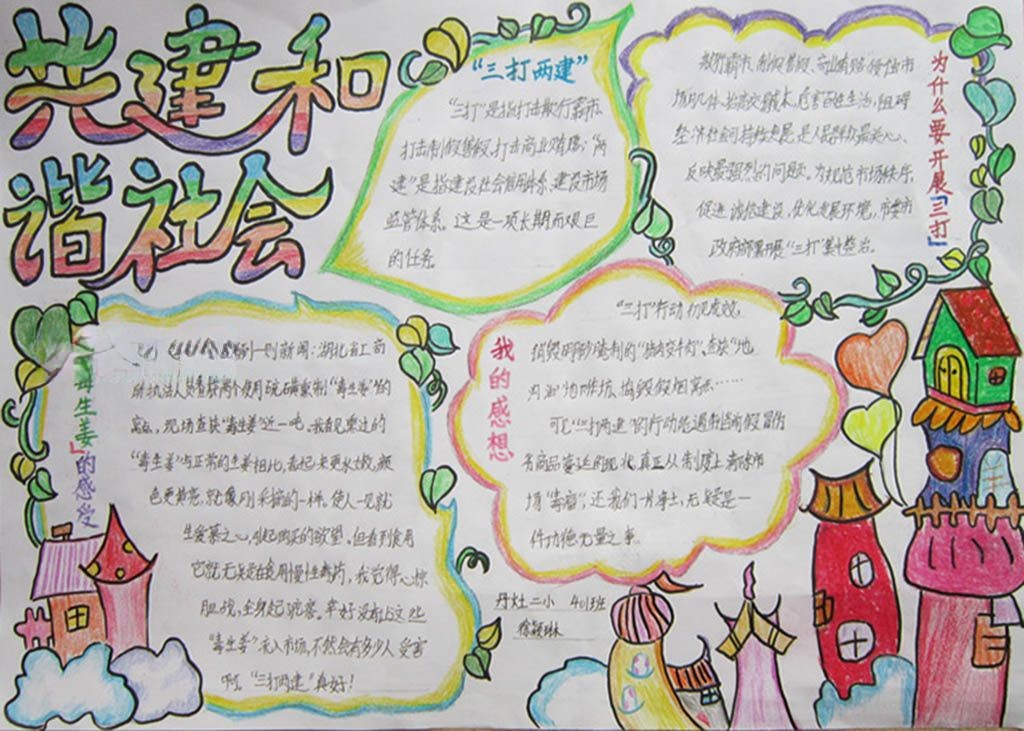 共建和
谐社会
“三打两建”
“三打”是指打击欺行霸市、
打击制假售假、打击商业贿赂；“两
建”是指建设社会信用体系、建设市场
监管体系。这是一项长期而艰巨
的任务。
为什么要开展「三打」
欺行霸市、制假售假、商业贿赂侵蚀市
场肌体、抬高交易成本、危害百姓生活、阻碍
经济社会可持续发展，是人民群众最关心、
反映最强烈的问题。为规范市场秩序，
促进诚信建设，优化发展环境，市委市
政府部署开展“三打”集中整治。
毒生姜」的感受
一则新闻：湖北省工商
所执法人员查获两个使用硫磺熏制“毒生姜”的
窝点，现场查获“毒生姜”近一吨。我看见熏过的
“毒生姜”与正常的生姜相比，看起来更水嫩，颜
色更黄亮，就像刚采摘的一样，使人一见就
生爱慕之心，引起购买的欲望。但看到食用
它就无异是在食用慢性毒药，我觉得心惊
胆战，全身起疙瘩。幸好没有让这些
“毒生姜”流入市场，不然会有多少人受害
啊。“三打两建”真好！
我的感想
“三打”行动初见成效，
销毁 的 、查获“地
沟油” 、捣毁假烟窝点……
可见“三打两建”的行动能遏制当前假冒伪
劣商品蔓延的现状，真正从制度上清除市
场“毒瘤”，还我们一片净土，无疑是一
件功德无量之事。
丹灶二小 4(1)班
徐颖琳